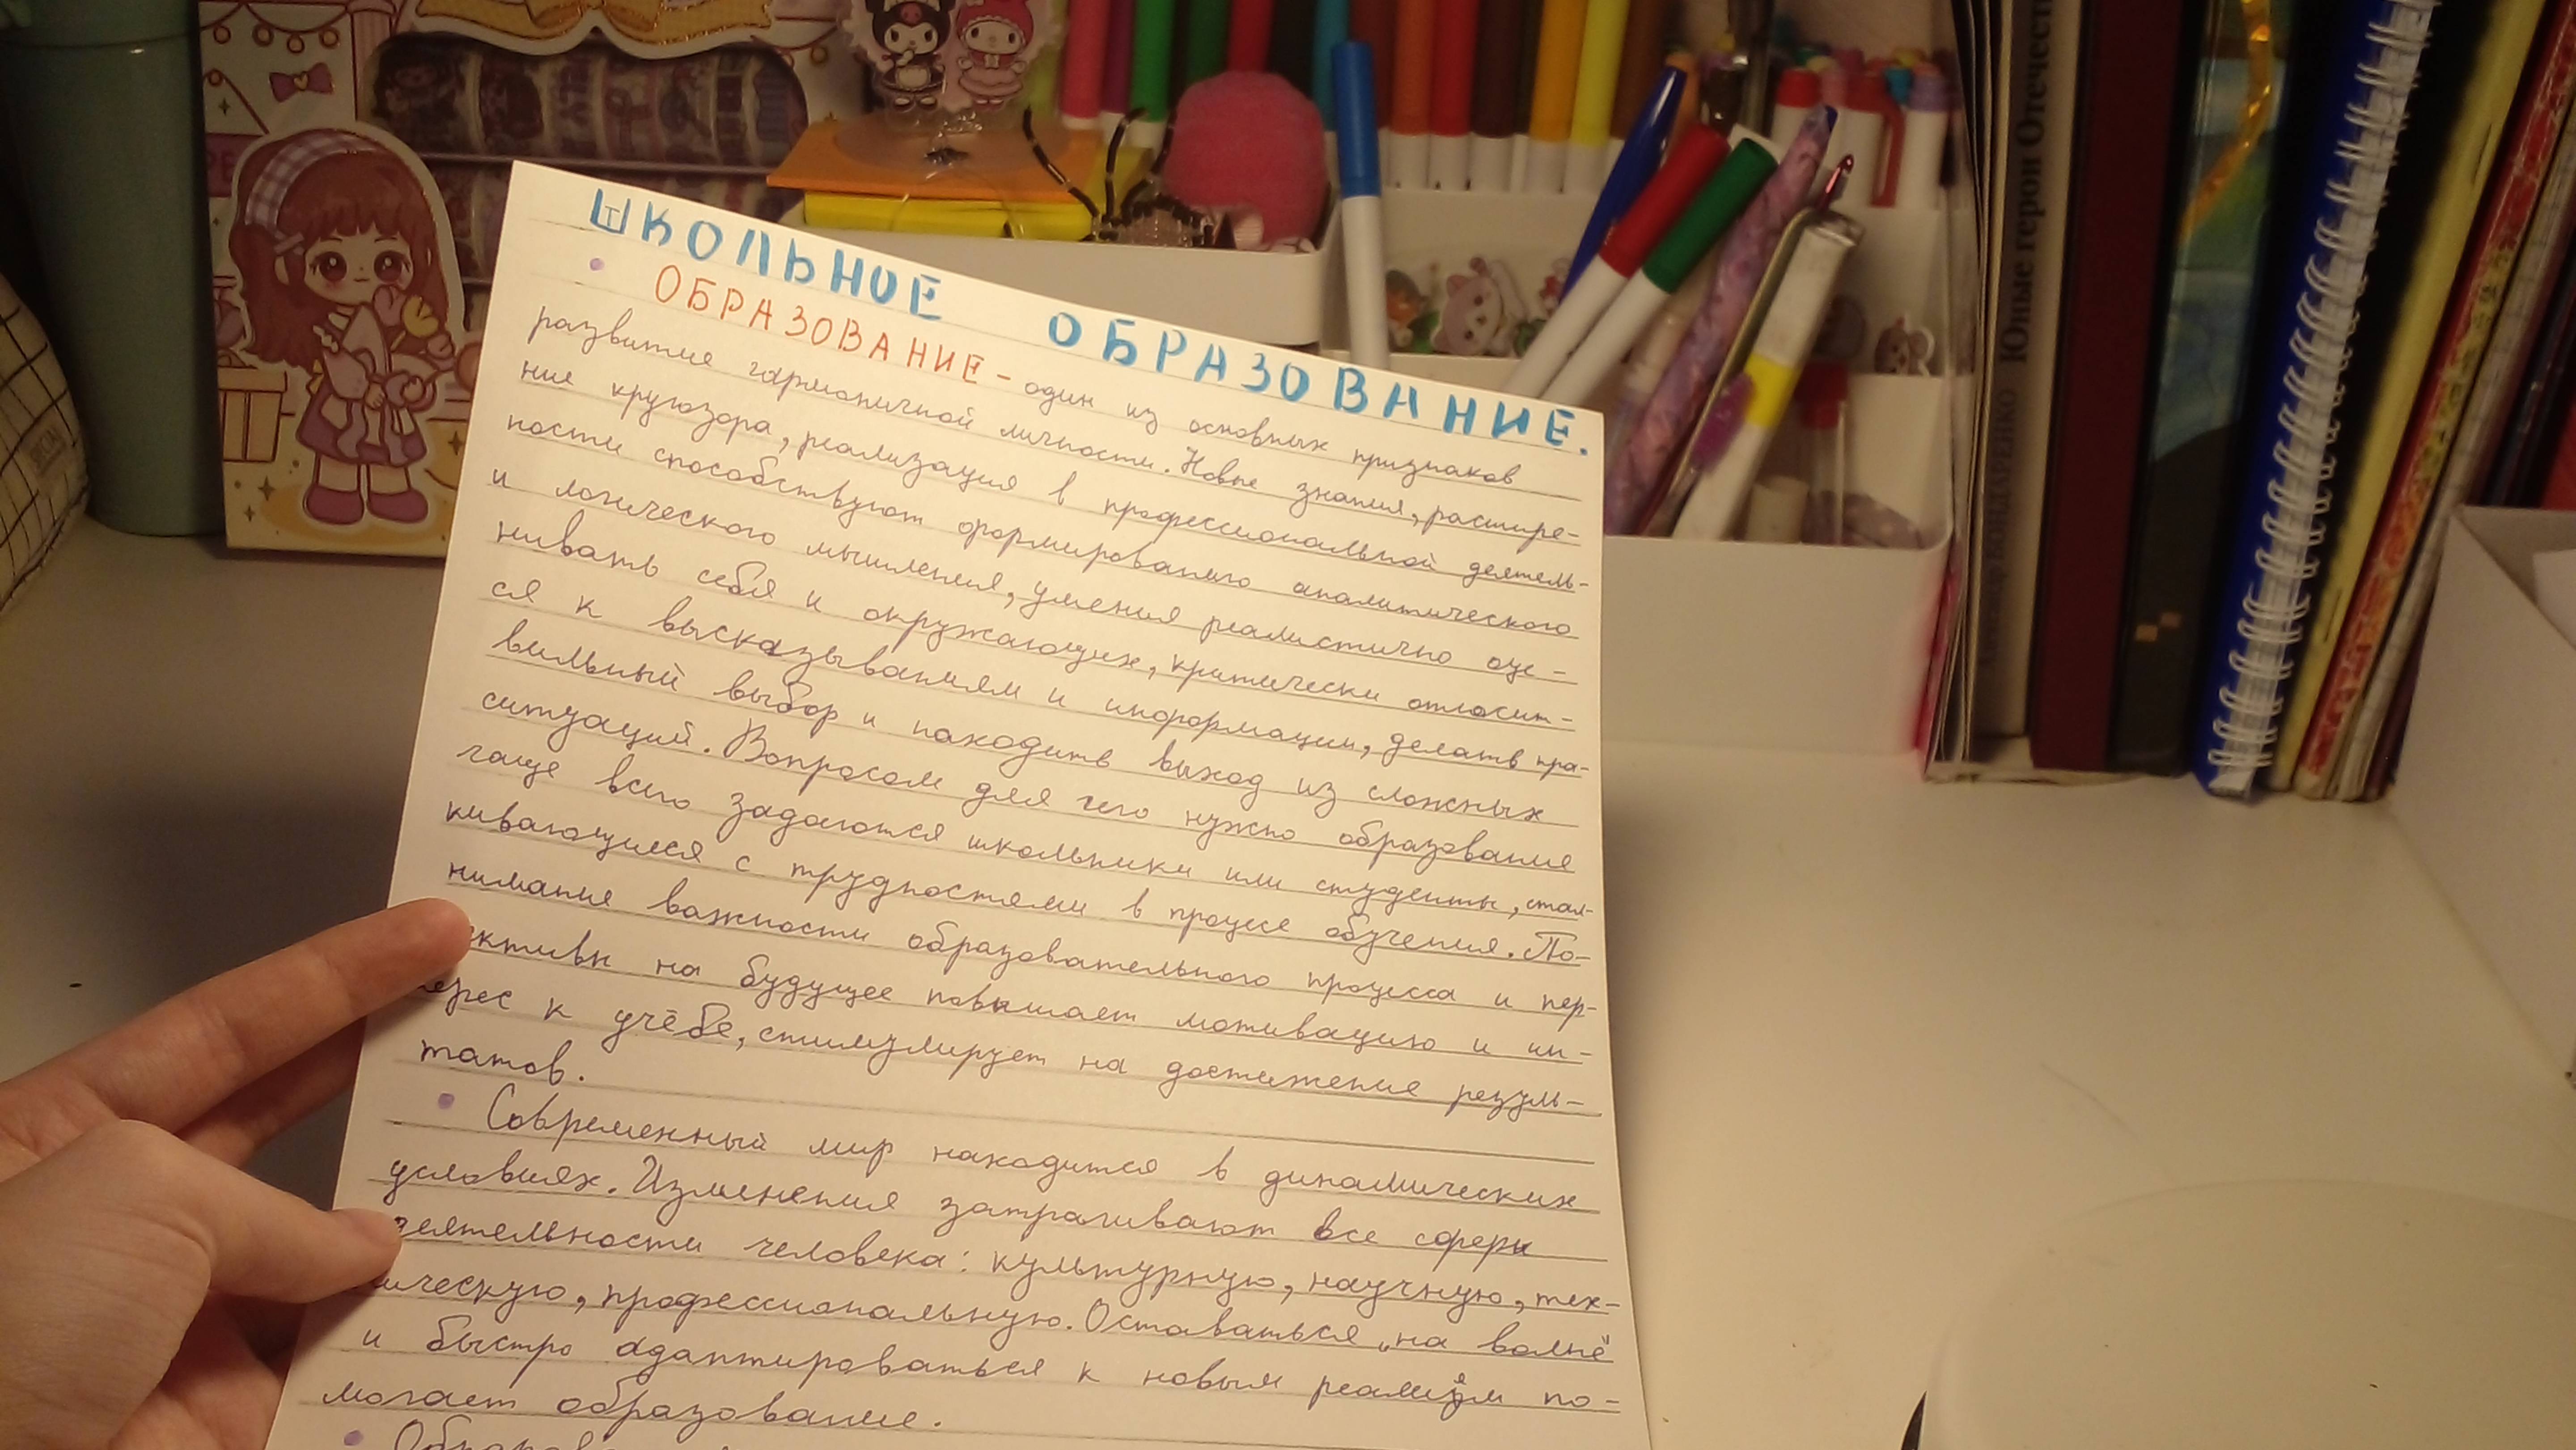 ШКОЛЬНОЕ ОБРАЗОВАНИЕ.
• ОБРАЗОВАНИЕ - один из основных признаков
развития гармоничной личности. Новые знания, расшире-
ние кругозора, реализация в профессиональной деятель-
ности способствуют формированию аналитического
и логического мышления, умения реалистично оце-
нивать себя и окружающих, критически относит-
ся к высказываниям и информации, делать пра-
вильный выбор и находить выход из сложных
ситуаций. Вопросом для чего нужно образование
чаще всего задаются школьники или студенты, стал-
кивающиеся с трудностями в процесе обучения. По-
нимание важности образовательного процесса и пер-
ективы на будущее повышает мотивацию и ин-
ерес к учёбе, стимулирует на достижение резуль-
татов.
• Современный мир находится в динамических
условиях. Изменения затрагивают все сферы
деятельности человека: культурную, научную, тех-
ическую, профессиональную. Оставаться „на волне"
и быстро адаптироваться к новым реалиям по-
могает образование.
Юные герои Отечества
SPECIAL